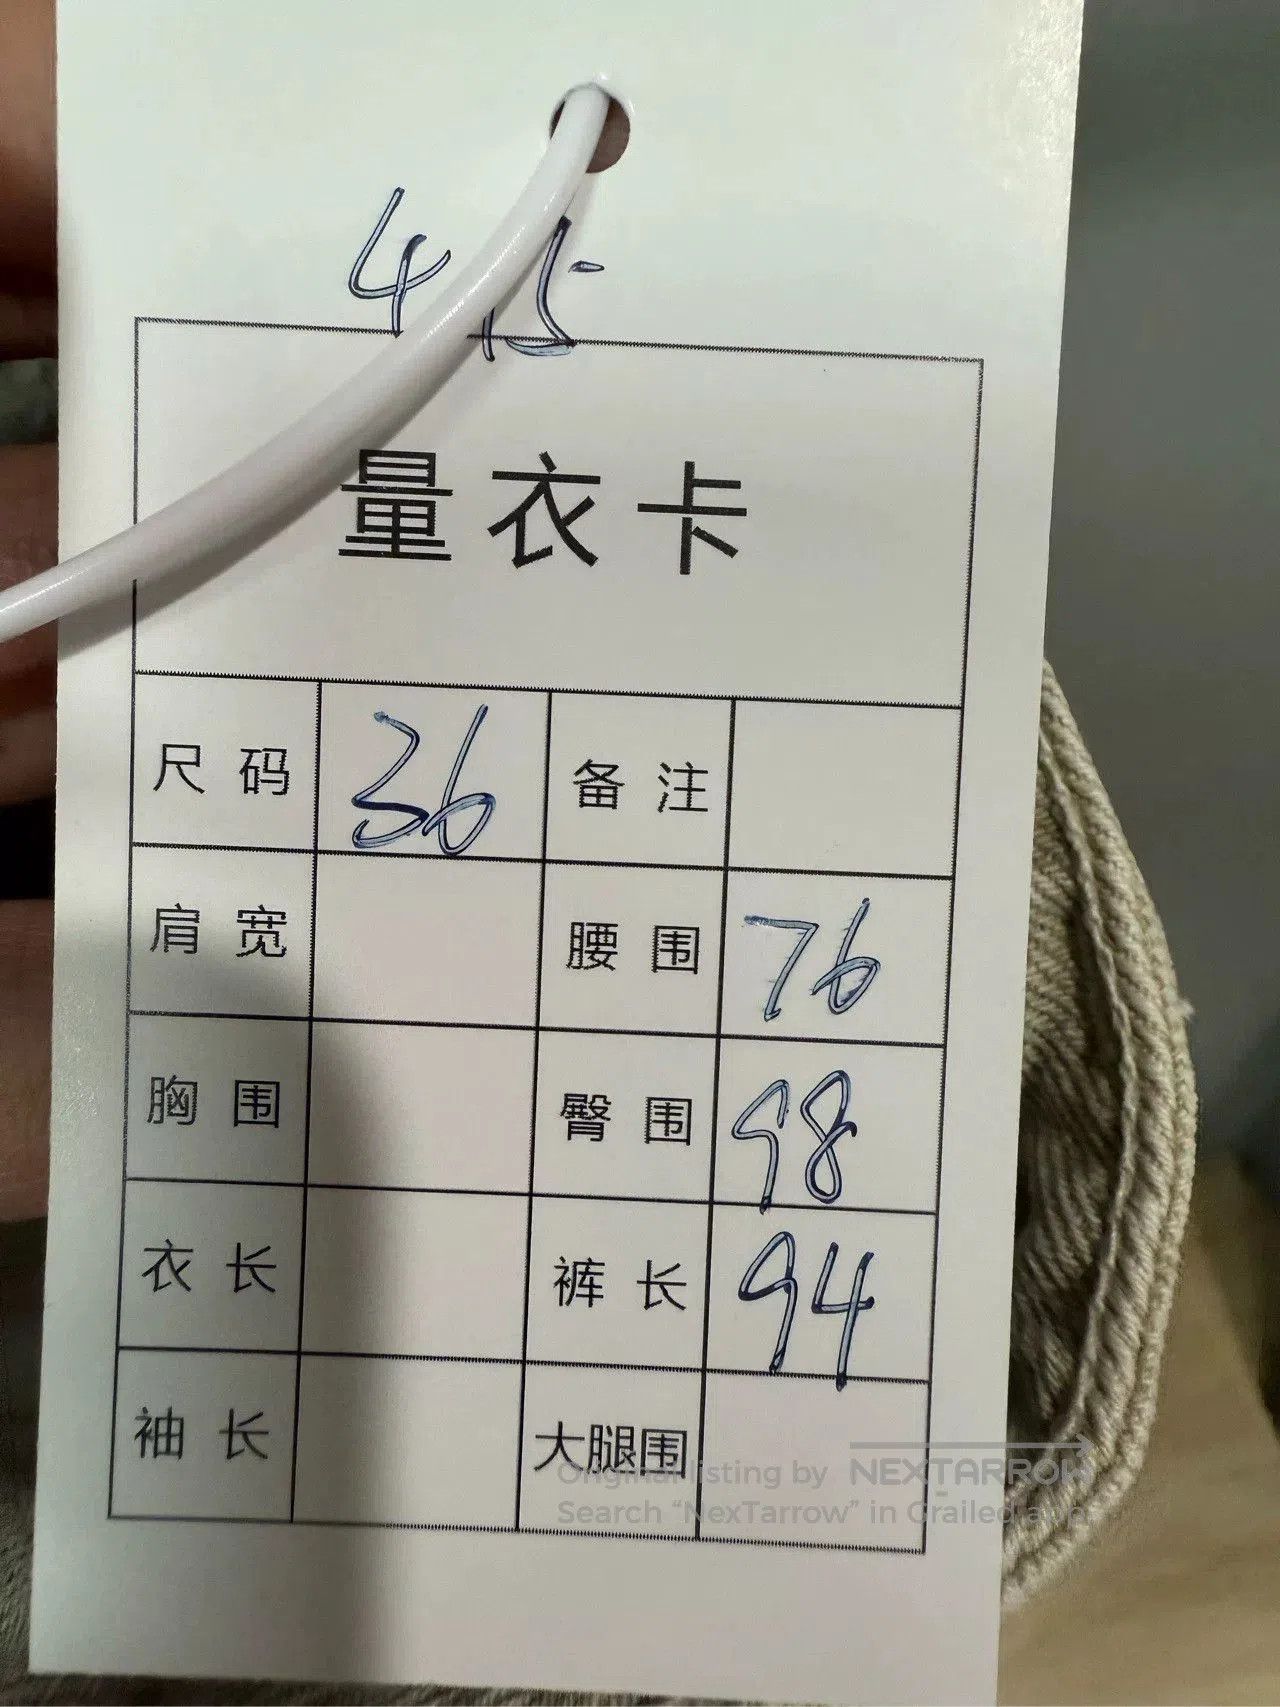 量衣卡
尺码 36 备注
肩宽 腰围 76
胸围 臀围 98
衣长 裤长 94
袖长 大腿围
Original listing by NEXTARROW
Search “NexTarrow” in Grailed app